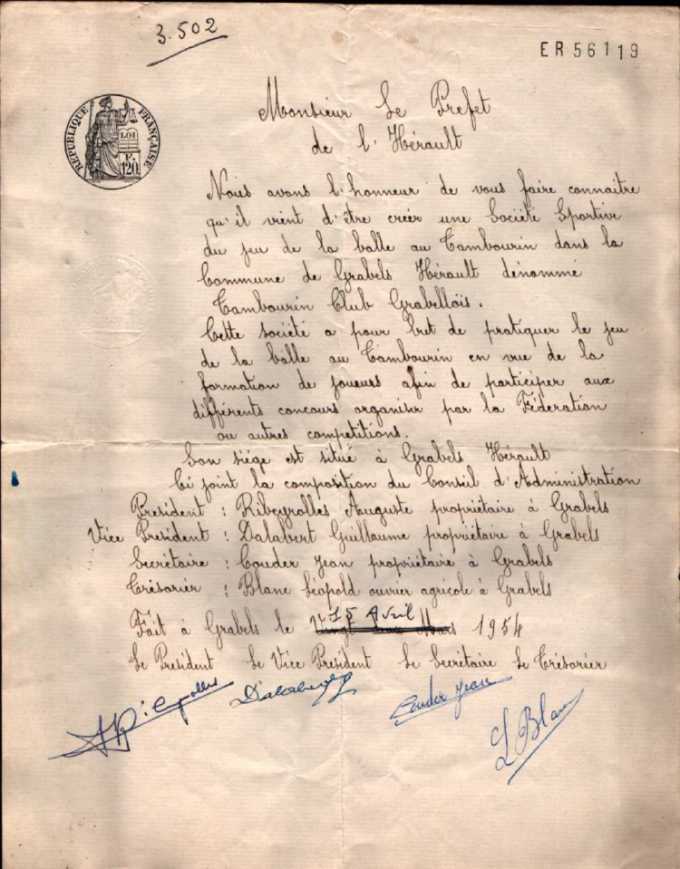 3.502
ER 56119
RÉPUBLIQUE FRANÇAISE
LOI
120
Monsieur Le Prefet
de l'Hérault
Nous avons l'honneur de vous faire connaitre
qu'il vient d'être créer une Société Sportive
du jeu de la balle au Tambourin dans la
Commune de Grabels Hérault dénommé
Tambourin Club Grabellois.
Cette société a pour but de pratiquer le jeu
de la balle au Tambourin en vue de la
formation de joueurs afin de participer aux
différents concours organiser par la Féderation
ou autres compétitions.
Son siège est situé à Grabels Hérault
Ci joint la composition du Conseil d'Administration
President : Ribeyrolles Auguste propriétaire à Grabels
Vice President : Dalabert Guillaume propriétaire à Grabels
Secrétaire : Couder Jean propriétaire à Grabels
Trésorier : Blanc Léopold ouvrier agricole à Grabels
Fait à Grabels le 15 Avril 1954
Le President Le Vice President Le Secrétaire Le Trésorier
Couder Jean
L Blanc